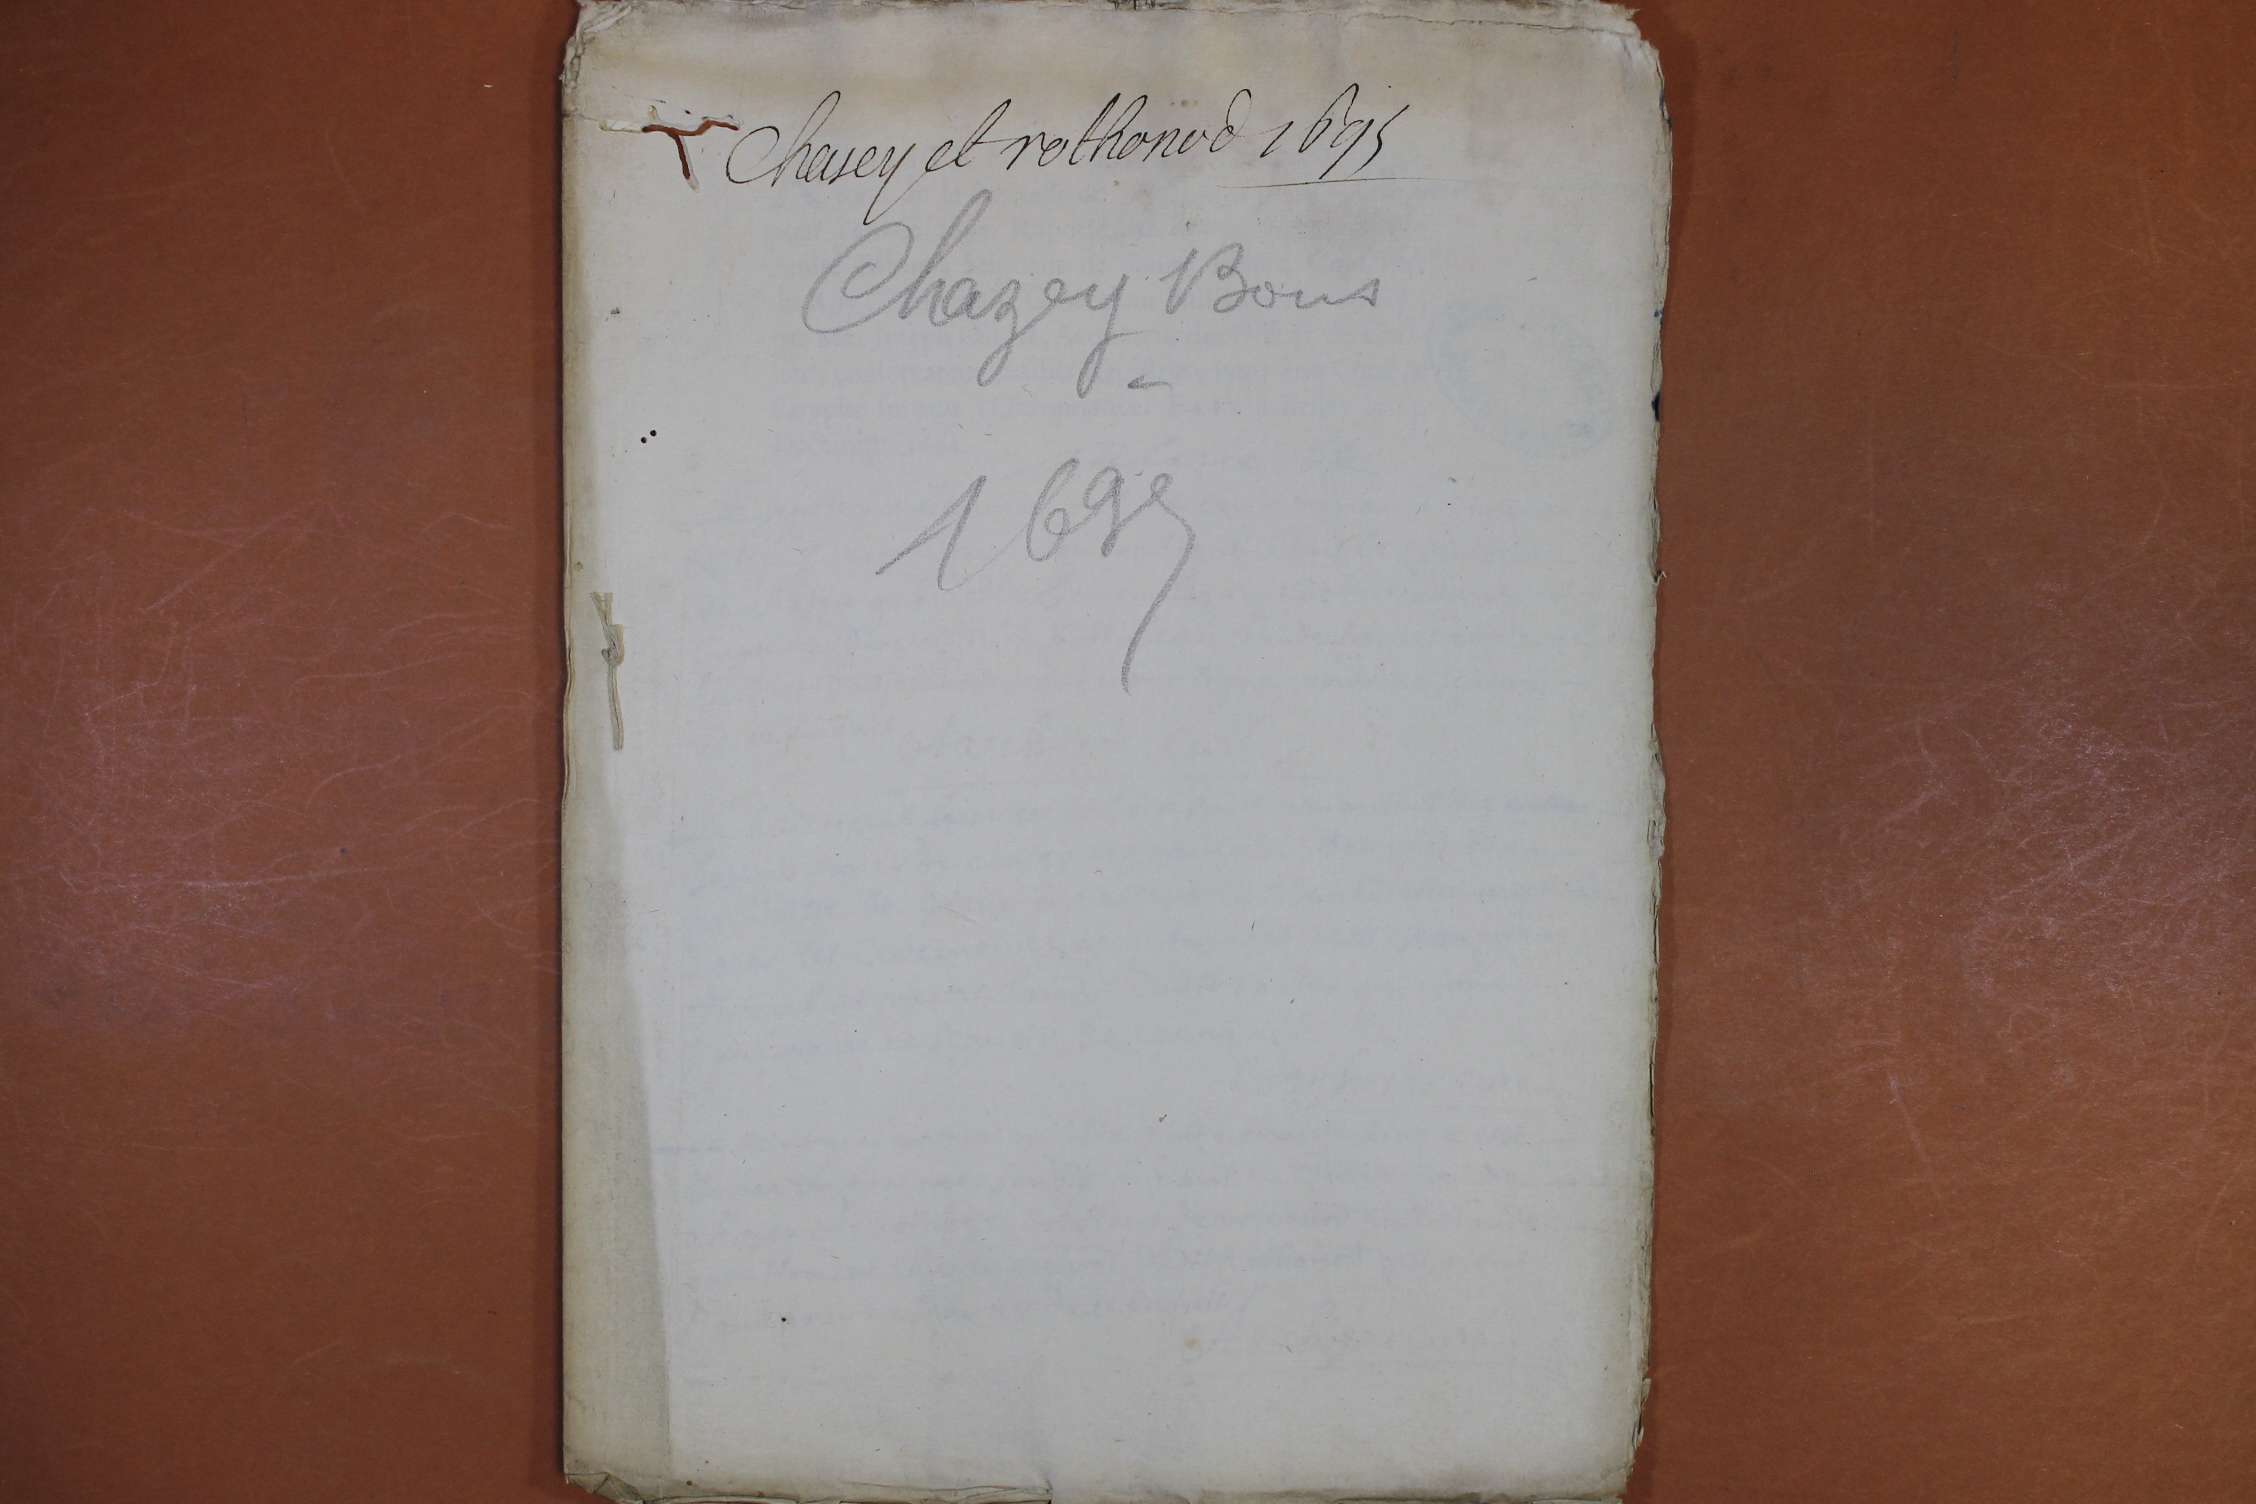 Chasey et rothonod 1695
Chazey Bons
1695